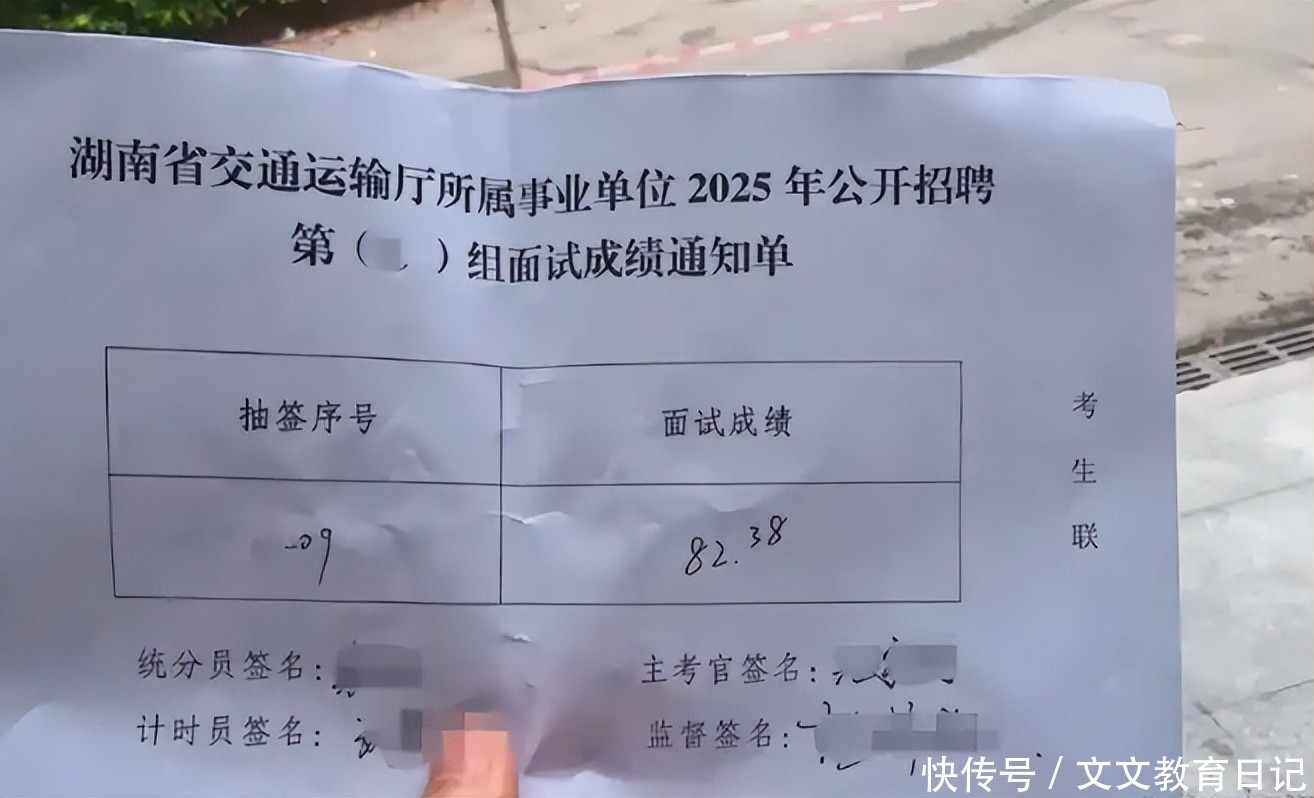 湖南省交通运输厅所属事业单位 2025 年公开招聘
第（ ）组面试成绩通知单
抽签序号 面试成绩
09 82.38
考生联
统分员签名： 主考官签名：
计时员签名： 监督签名：
快传号 / 文文教育日记